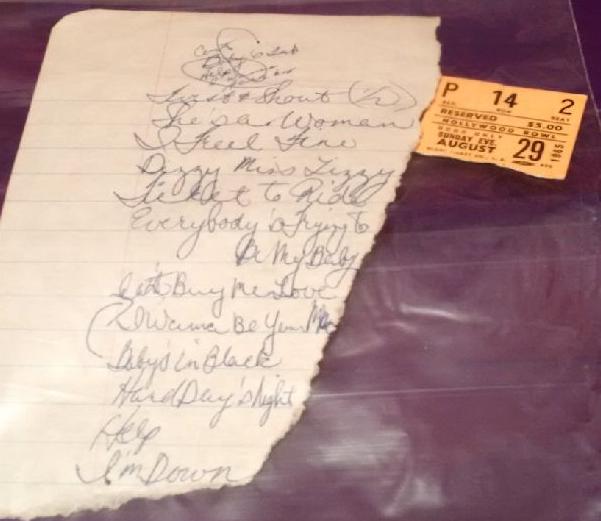 Twist & Shout (½)
She's a Woman
I Feel Fine
Dizzy Miss Lizzy
Ticket to Ride
Everybody's Trying to
Be My Baby
Can't Buy Me Love
I Wanna Be Your Man
Baby's in Black
Hard Day's Night
Help
I'm Down
P 14 2
ROW SEAT
RESERVED $5.00
HOLLYWOOD BOWL
SUNDAY EVE.
AUGUST 29 1965